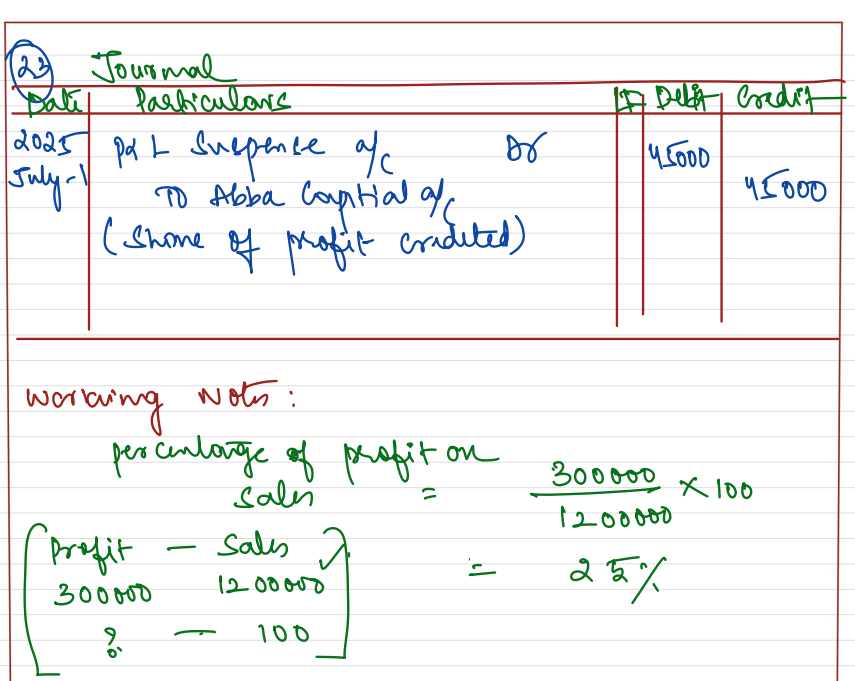 23 Journal
Date Particulars LF Debit Credit
2025 P&L Suspense a/c Dr 45000
July-1 To Abba Capital a/c 45000
(Share of profit credited)
Working Notes:
percentage of profit on
sales = 300000 / 1200000 × 100
= 25%
Profit — Sales
300000 1200000
? — 100